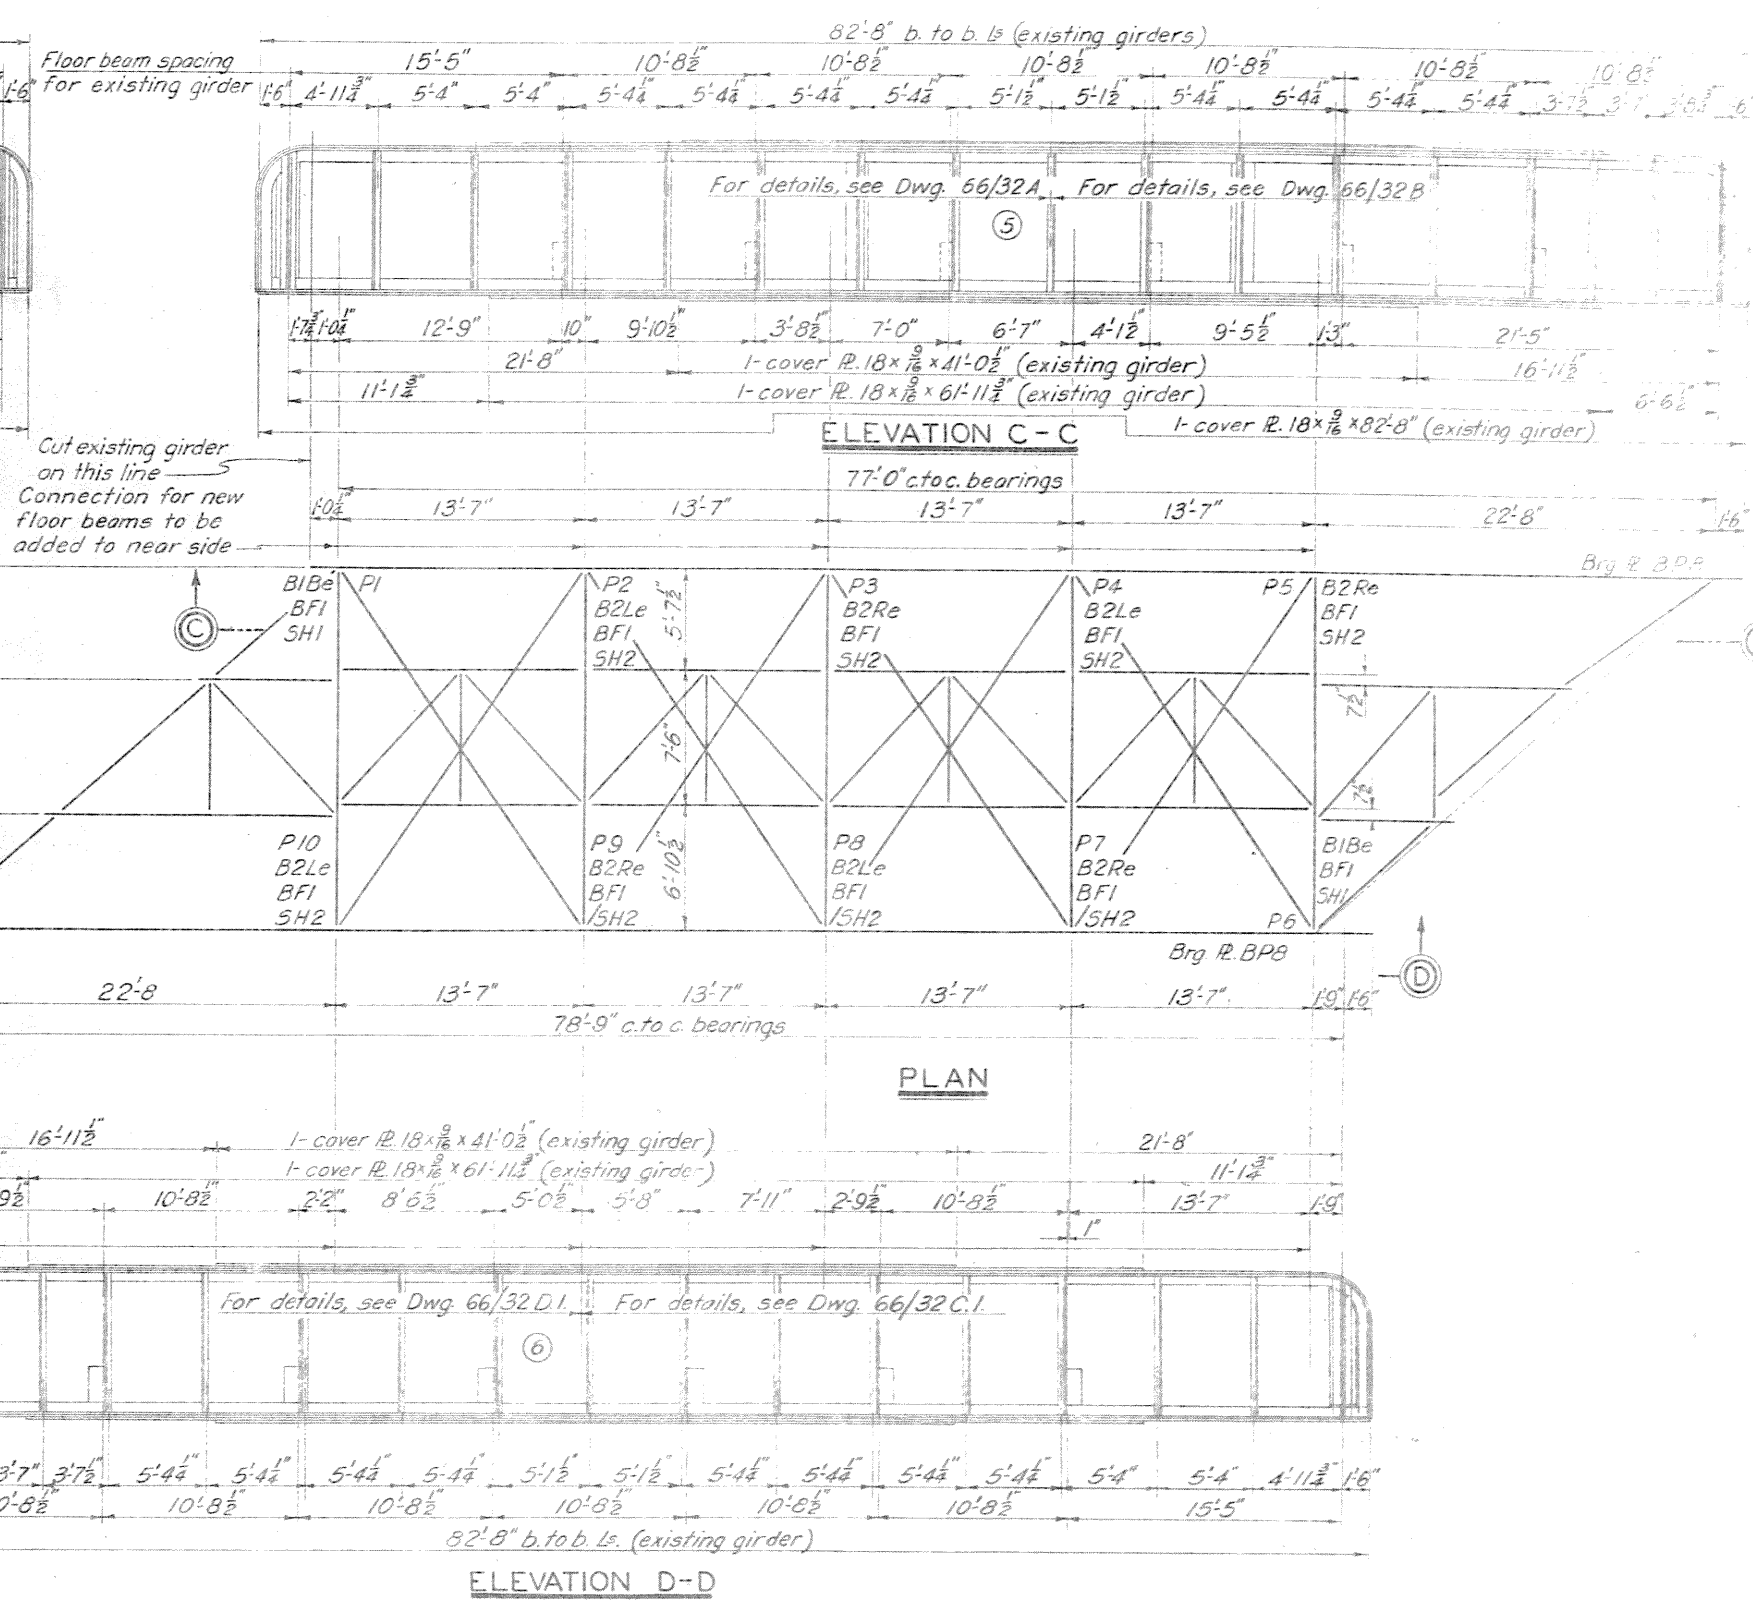 82'-8" b. to b. Ls (existing girders)
Floor beam spacing
for existing girder
15'-5" 10'-8½" 10'-8½" 10'-8½" 10'-8½" 10'-8½" 10'-8½"
1'-6" 1'-6" 4'-11¾" 5'-4" 5'-4" 5'-4¼" 5'-4¼" 5'-4¼" 5'-4¼" 5'-1½" 5'-1½" 5'-4¼" 5'-4¼" 5'-4¼" 5'-4¼" 3'-7½" 3'-7"
For details, see Dwg. 66/32A For details, see Dwg. 66/32B
5
1'-7¾" 1'-0¼" 12'-9" 10" 9'-10½" 3'-8½" 7'-0" 6'-7" 4'-1½" 9'-5½" 1'-3" 21'-5"
21'-8" 1- cover PL. 18 x 9/16 x 41'-0½" (existing girder) 16'-11½"
11'-1¾" 1- cover PL. 18 x 9/16 x 61'-11¾" (existing girder) 6'-6½"
1- cover PL. 18 x 9/16 x 82'-8" (existing girder)
ELEVATION C-C
Cut existing girder
on this line
Connection for new
floor beams to be
added to near side
77'-0" c. to c. bearings
1'-0¼" 13'-7" 13'-7" 13'-7" 13'-7" 22'-8" 1'-6"
Brg PL BPA
B1Be P1 P2 P3 P4 P5 B2Re
BF1 B2Le B2Re B2Le BF1
SH1 BF1 BF1 BF1 SH2
SH2 SH2 SH2
C
5'-7½"
7½"
7'-6"
7½"
6'-10½"
P10 P9 P8 P7 B1Be
B2Le B2Re B2Le B2Re BF1
BF1 BF1 BF1 BF1 SH1
SH2 SH2 SH2 SH2 P6
Brg. PL. BP8
D
22'-8 13'-7" 13'-7" 13'-7" 13'-7" 1'-9" 1'-6"
78'-9" c. to c. bearings
PLAN
16'-11½" 1- cover PL. 18 x 9/16 x 41'-0½" (existing girder) 21'-8"
1- cover PL. 18 x 9/16 x 61'-11¾" (existing girder) 11'-1¾"
10'-8½" 2'-2" 8'-6½" 5'-0½" 5'-8" 7'-11" 2'-9½" 10'-8½" 13'-7" 1'-9"
1"
For details, see Dwg. 66/32 D.1. For details, see Dwg. 66/32 C.1.
6
3'-7" 3'-7½" 5'-4¼" 5'-4¼" 5'-4¼" 5'-4¼" 5'-1½" 5'-1½" 5'-4¼" 5'-4¼" 5'-4¼" 5'-4¼" 5'-4" 5'-4" 4'-11¾" 1'-6"
0'-8½" 10'-8½" 10'-8½" 10'-8½" 10'-8½" 10'-8½" 15'-5"
82'-8" b. to b. Ls. (existing girder)
ELEVATION D-D